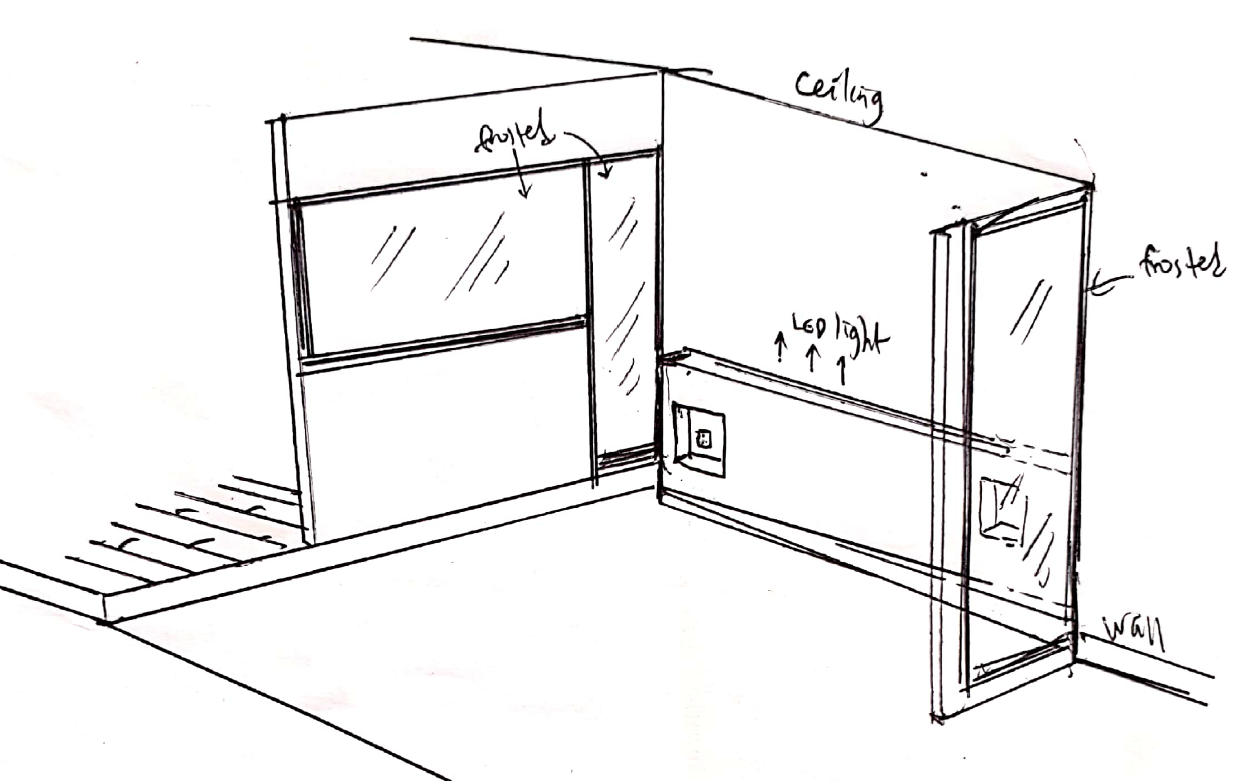 ceiling
frosted
frosted
LED light
wall